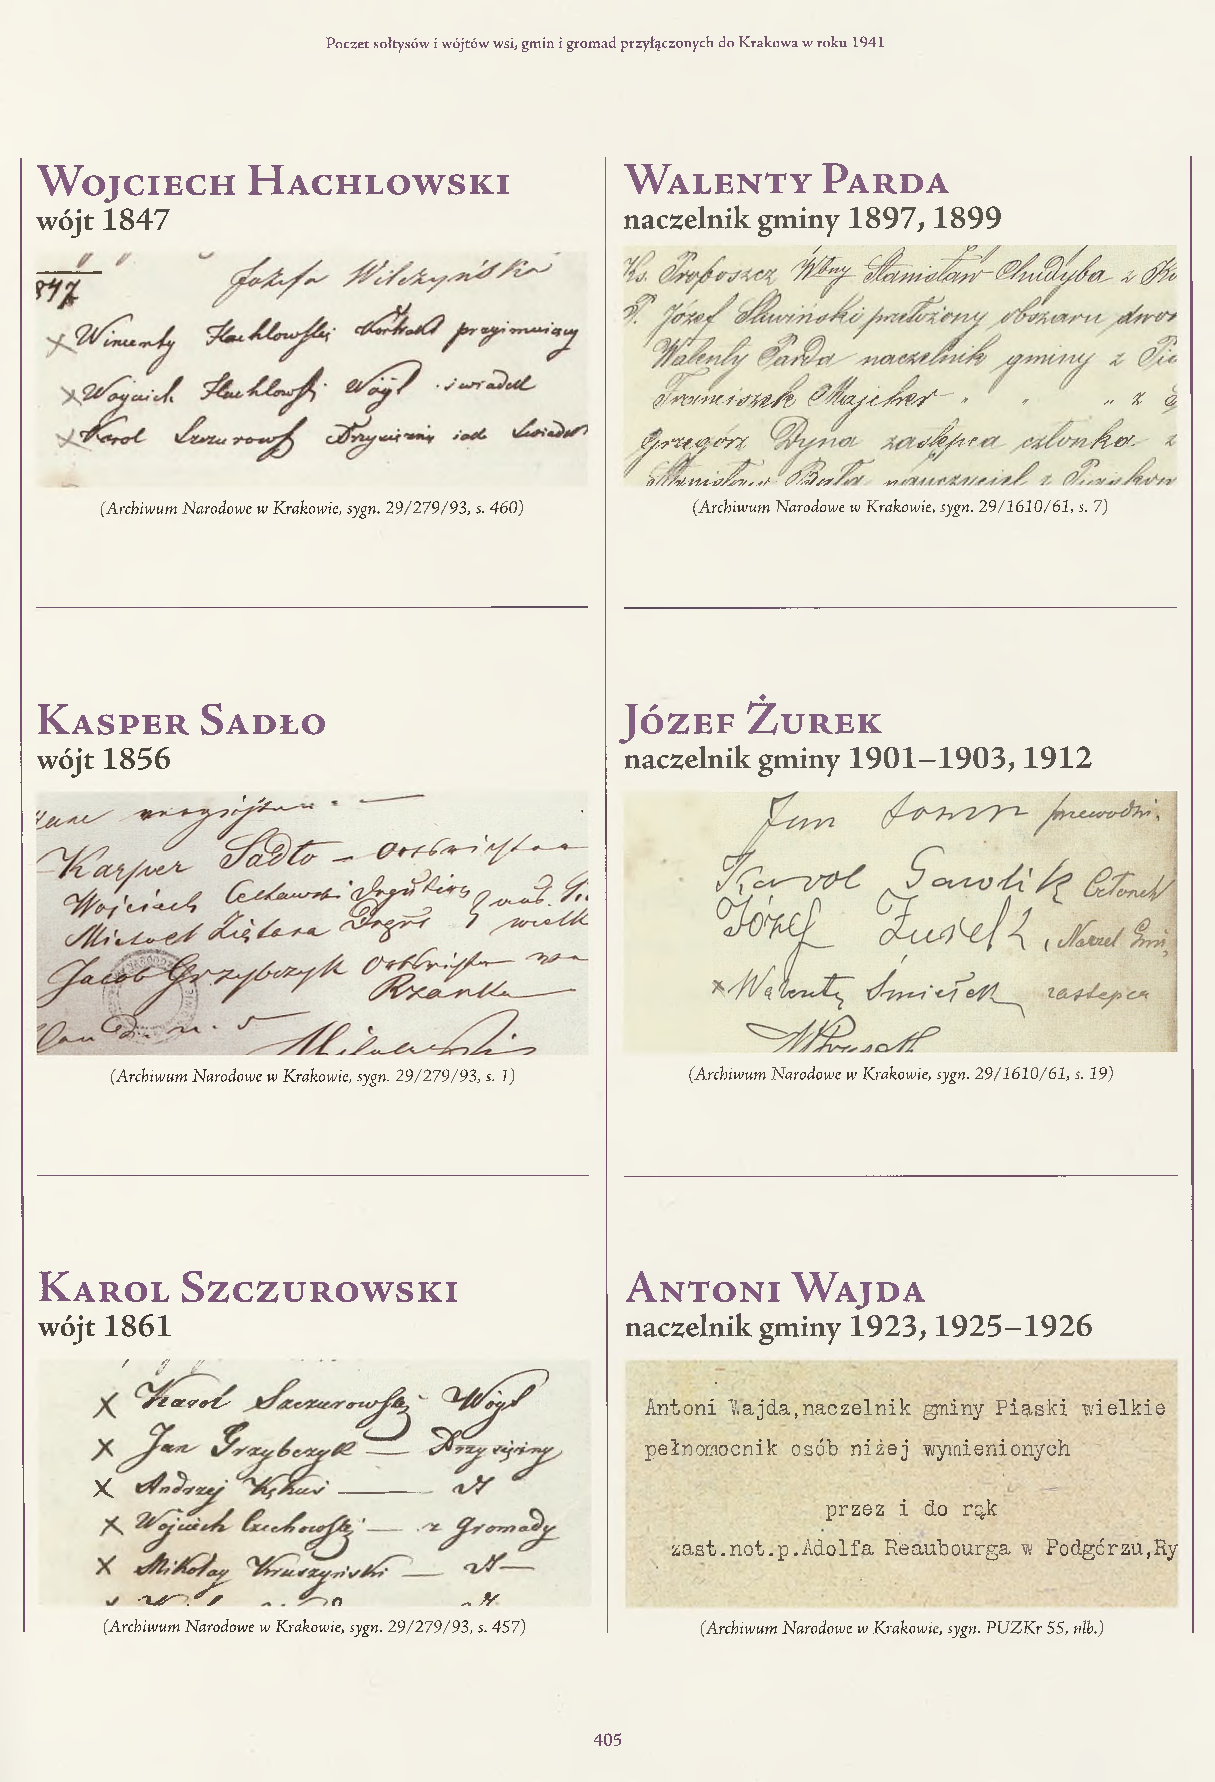 Poczet sołtysów i wójtów wsi, gmin i gromad przyłączonych do Krakowa w roku 1941
Wojciech Hachlowski
wójt 1847
847
Józefa Wilczyńska
x Wincenty Hachlowski przyimuiący
x Woyciech Hachlowski Wóyt świadek
x Karol Szczurowski Przysiężny
(Archiwum Narodowe w Krakowie, sygn. 29/279/93, s. 460)
Kasper Sadło
wójt 1856
Kasper Sadło –
Wojciech
Michael
Jacob Grzybczyk
Rżanka
(Archiwum Narodowe w Krakowie, sygn. 29/279/93, s. 1)
Karol Szczurowski
wójt 1861
x Karol Szczurowski Wóyt
x Jan Grzybczyk — Przysiężny
x Andrzej
x Wojciech Czechowski — z Gromady
x Mikołay Kruszyński —
(Archiwum Narodowe w Krakowie, sygn. 29/279/93, s. 457)
Walenty Parda
naczelnik gminy 1897, 1899
Ks. Proboszcz Wbny Stanisław Chudyba z
P. Józef Śliwiński przełożony obszaru dwor
Walenty Parda naczelnik gminy z Pia
Franciszek Majcher " " " z
Grzegórz Dyna zastępca członka z
Stanisław nauczyciel z
(Archiwum Narodowe w Krakowie, sygn. 29/1610/61, s. 7)
Józef Żurek
naczelnik gminy 1901–1903, 1912
Jan przewodni.
Karol Gawlik Członek
Józef Żurek, Naczel Gmi.
x Walenty Śmiełek zastępca
(Archiwum Narodowe w Krakowie, sygn. 29/1610/61, s. 19)
Antoni Wajda
naczelnik gminy 1923, 1925–1926
Antoni Wajda,naczelnik gminy Piąski wielkie
pełnomocnik osób niżej wymienionych
przez i do rąk
zast.not.p.Adolfa Reaubourga w Podgórzu,Ry
(Archiwum Narodowe w Krakowie, sygn. PUZKr 55, nlb.)
405